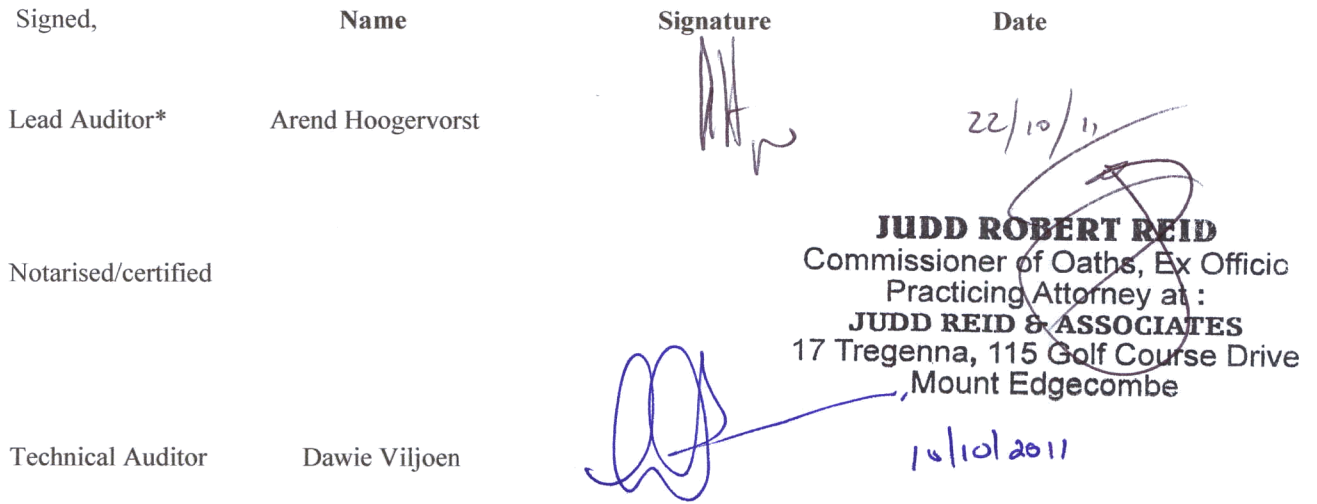 Signed, Name Signature Date
Lead Auditor* Arend Hoogervorst 22/10/11
Notarised/certified
JUDD ROBERT REID
Commissioner of Oaths, Ex Officio
Practicing Attorney at :
JUDD REID & ASSOCIATES
17 Tregenna, 115 Golf Course Drive
Mount Edgecombe
Technical Auditor Dawie Viljoen 10/10/2011